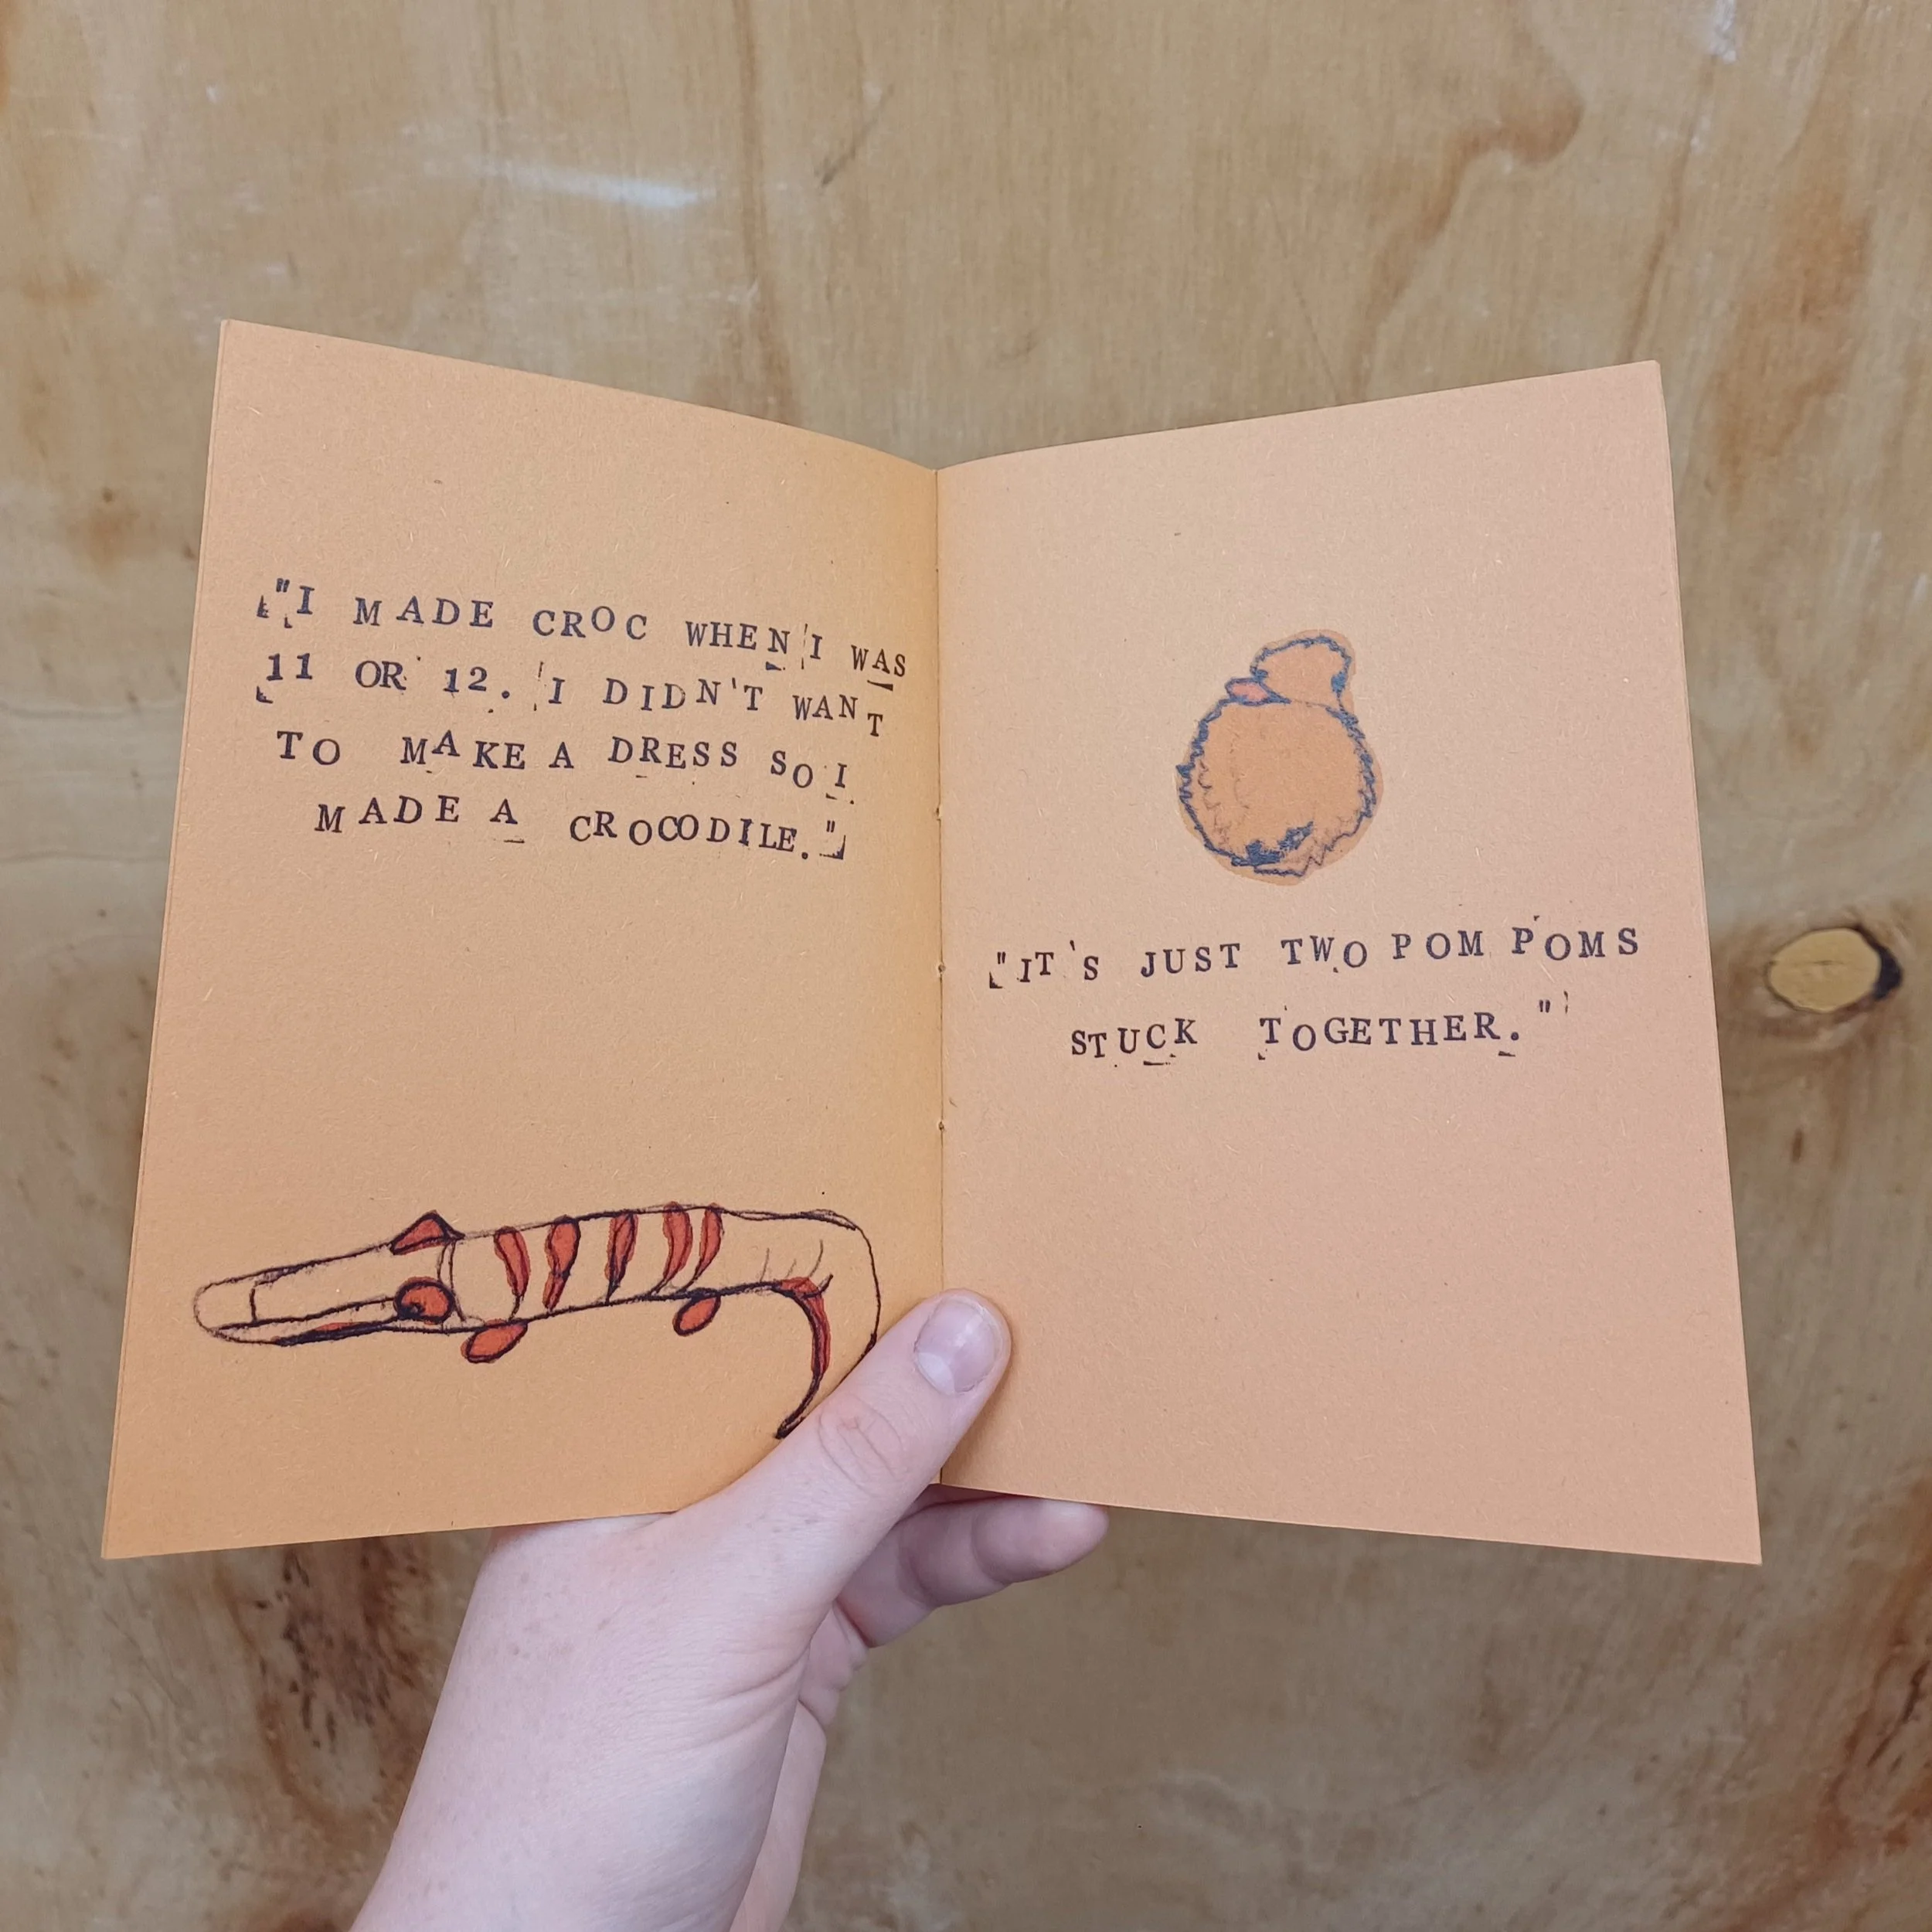 "I MADE CROC WHEN I WAS
11 OR 12. I DIDN'T WANT
TO MAKE A DRESS SO I
MADE A CROCODILE."
"IT'S JUST TWO POM POMS
STUCK TOGETHER."